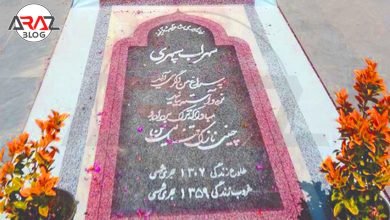 ARAZ
BLOG
سهراب سپهری
به سراغ من اگر می آئید
نرم و آهسته بیائید
مبادا که ترک بردارد
چینی نازک تنهائی من
طلوع زندگی ۱۳۰۷ هجری شمسی
غروب زندگی ۱۳۵۹ هجری شمسی